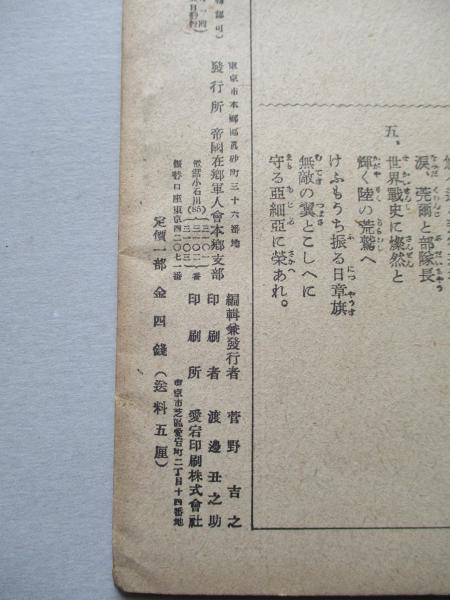 涙、莞爾と部隊長
五、
世界戰史に燦然と
輝く陸の荒鷲へ
けふもうち振る日章旗
無敵の翼とこしへに
守る亞細亞に榮あれ。
東京市本鄕區眞砂町三十六番地
發行所 帝國在鄕軍人會本鄕支部
電話小石川(85)
振替口座東京四二〇七一番
編輯兼發行者 菅野吉之
印刷者 渡邊丑之助
印刷所 愛宕印刷株式會社
東京市芝區愛宕町二丁目十四番地
定價一部金四錢(送料五厘)